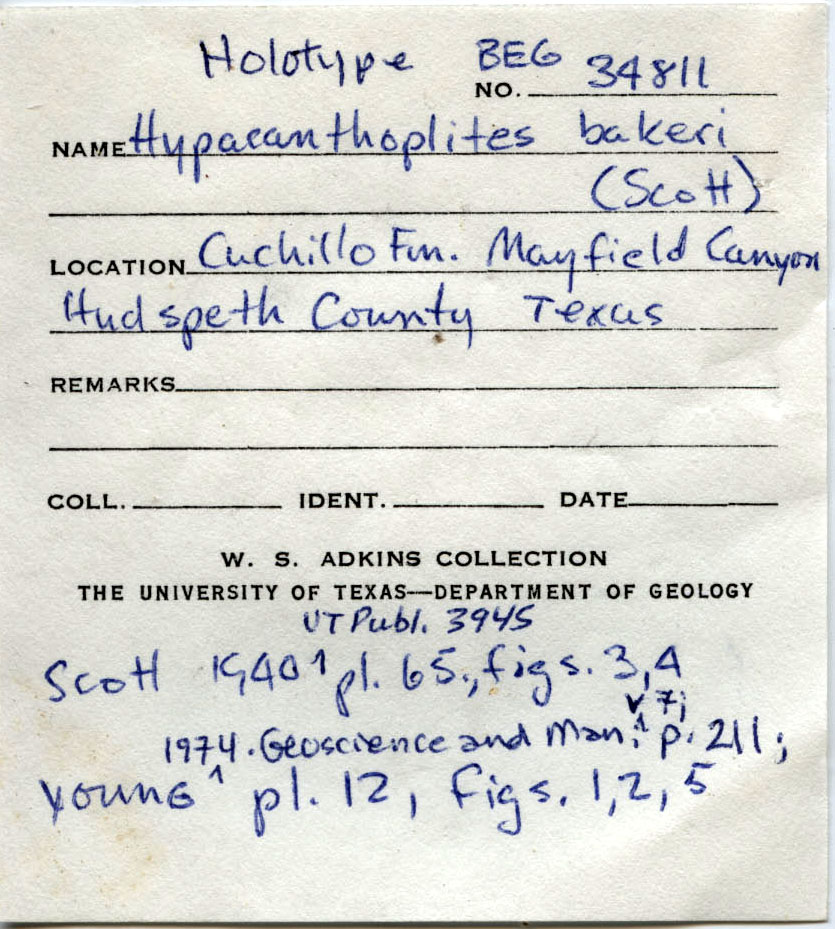 Holotype BEG
NO. 34811
NAME Hypacanthoplites bakeri
(Scott)
LOCATION Cuchillo Fm. Mayfield Canyon
Hudspeth County Texas
REMARKS
COLL. IDENT. DATE
W. S. ADKINS COLLECTION
THE UNIVERSITY OF TEXAS—DEPARTMENT OF GEOLOGY
UT Publ. 3945
Scott 1940 ^ pl. 65., figs. 3, 4
v 7;
1974. Geoscience and Man. ^ p. 211;
Young ^ pl. 12, figs. 1, 2, 5